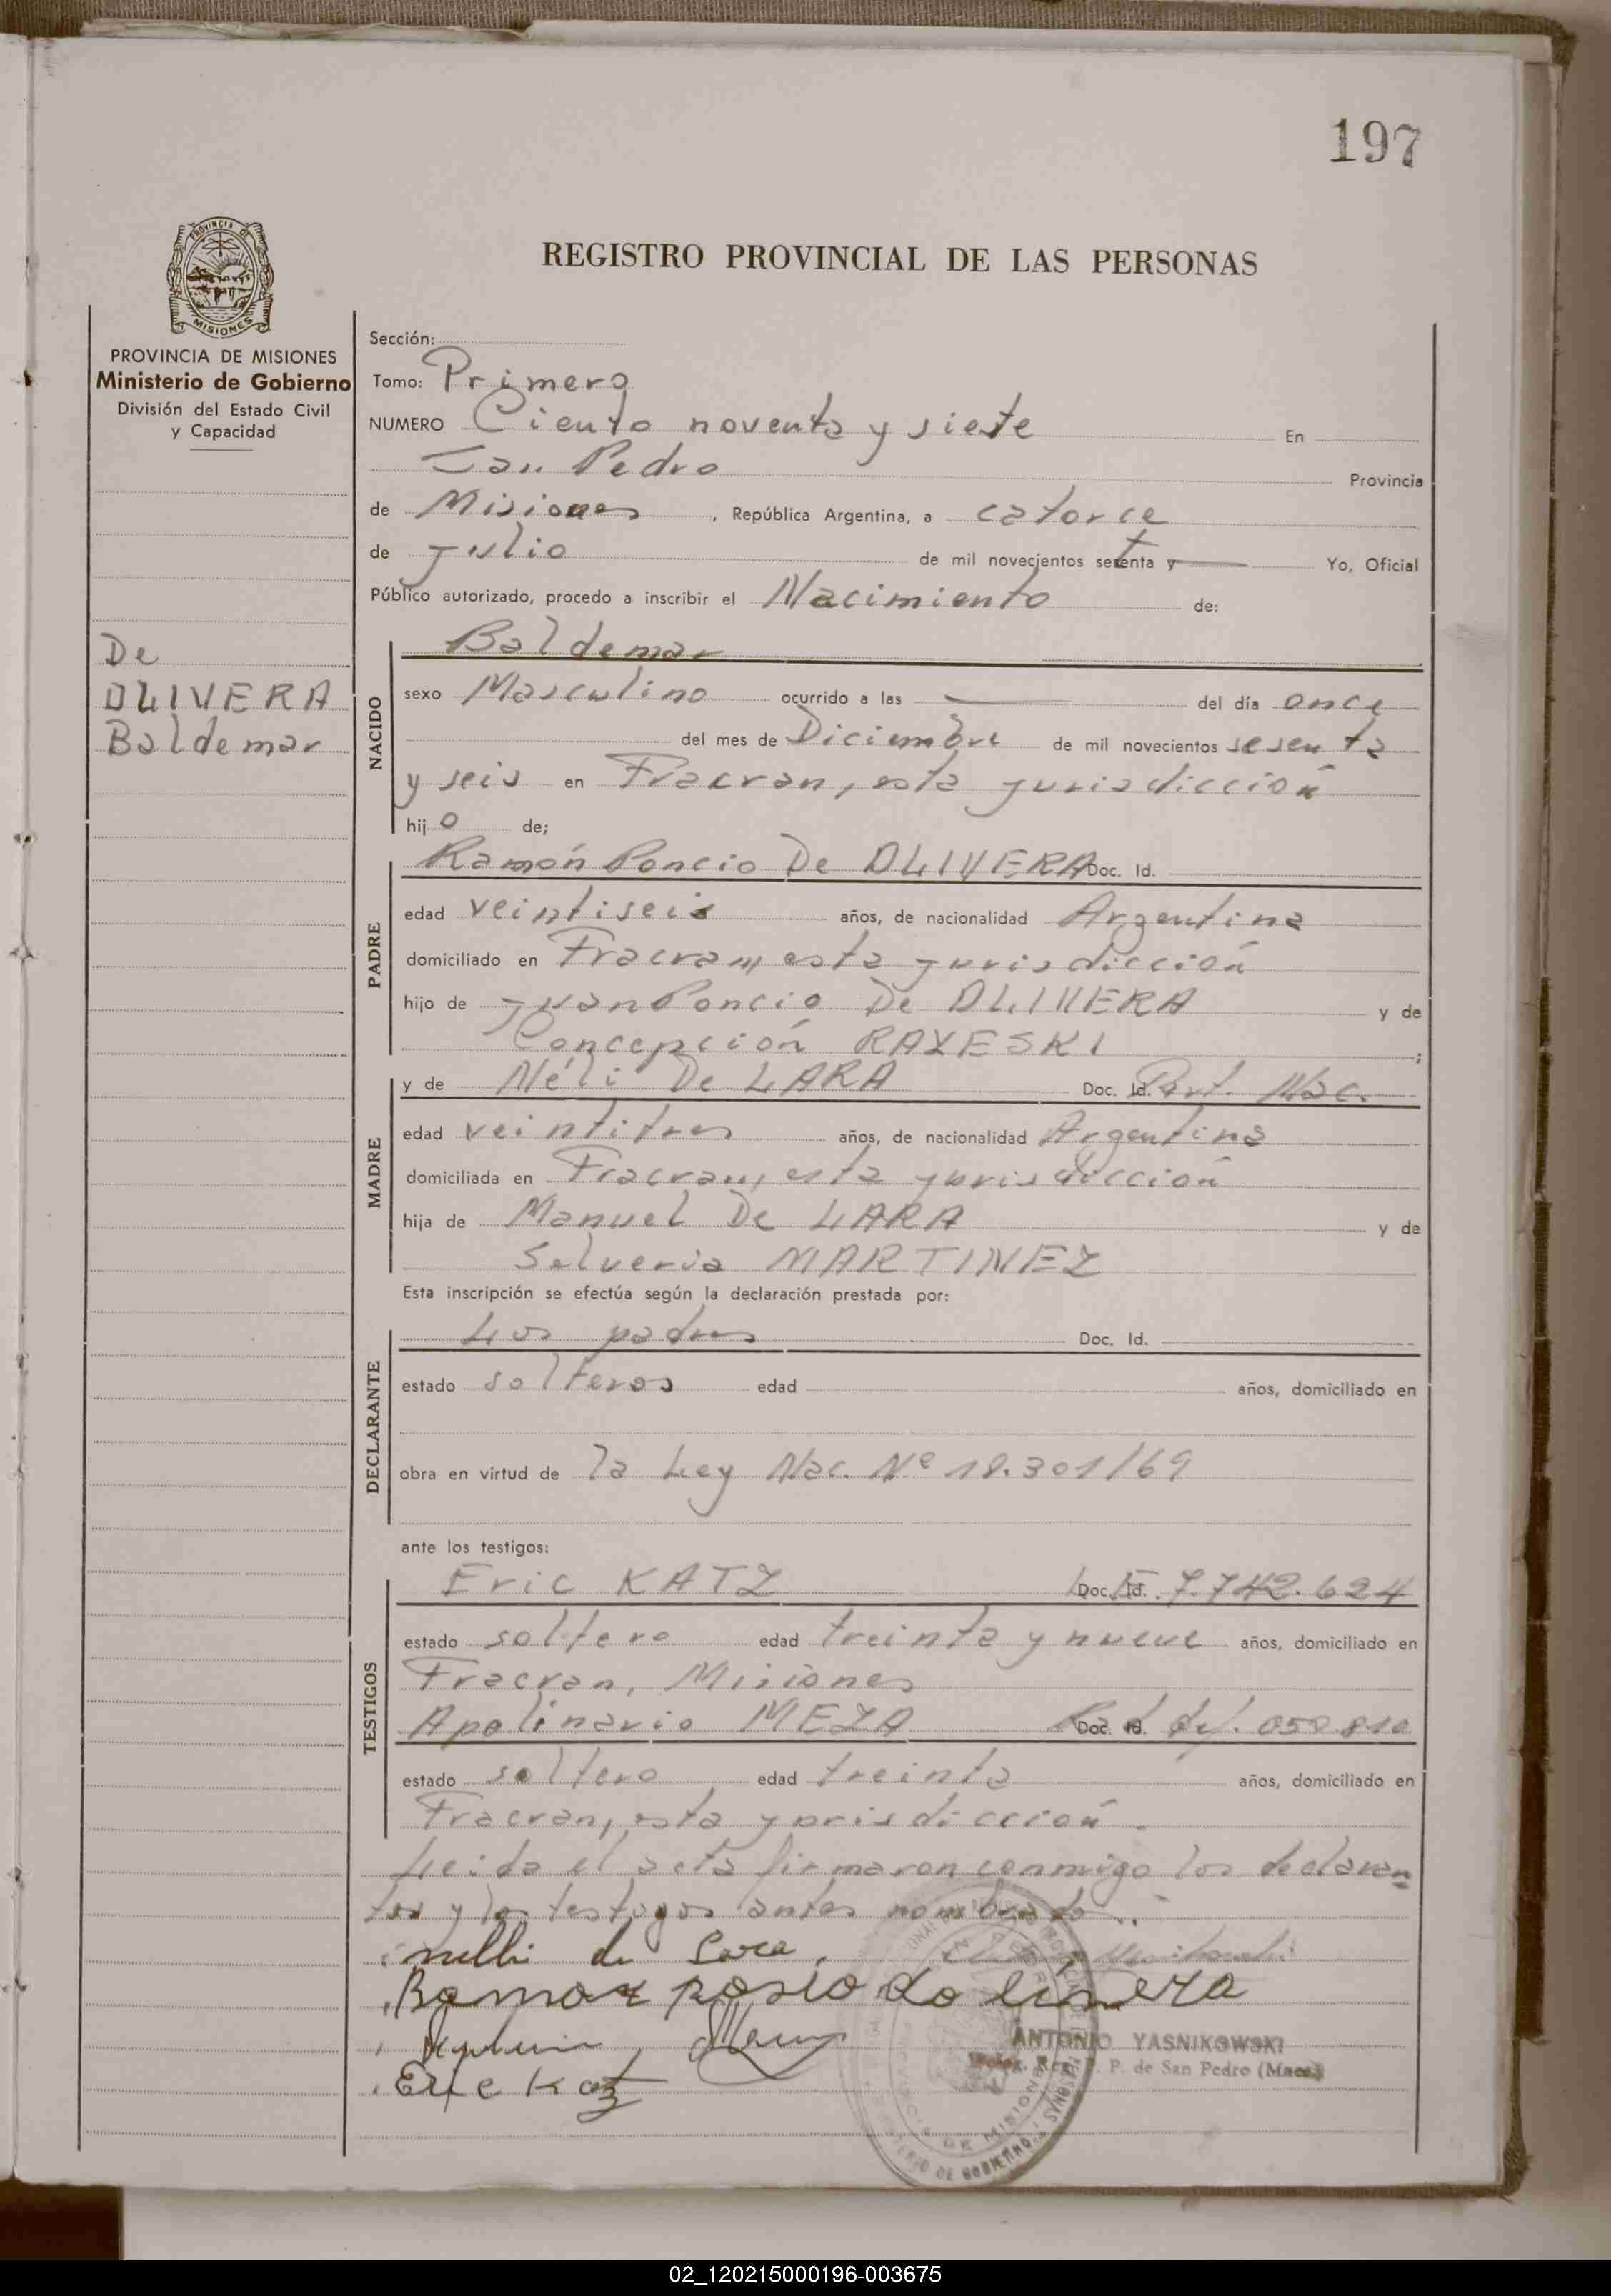 197
PROVINCIA DE
MISIONES
REGISTRO PROVINCIAL DE LAS PERSONAS
PROVINCIA DE MISIONES
Ministerio de Gobierno
División del Estado Civil
y Capacidad
De
OLIVERA
Baldemar
Sección:
Tomo: Primero
NUMERO Ciento noventa y siete En
San Pedro Provincia
de Misiones, República Argentina, a catorce
de Julio de mil novecientos setenta y — Yo, Oficial
Público autorizado, procedo a inscribir el Nacimiento de:
NACIDO
Baldemar
sexo Masculino ocurrido a las — del día once
del mes de Diciembre de mil novecientos sesenta
y seis en Fracran, esta jurisdicción
hijo de;
PADRE
Ramón Poncio De OLIVERA Doc. Id.
edad veintiseis años, de nacionalidad Argentina
domiciliado en Fracran, esta jurisdicción
hijo de Juan Poncio De OLIVERA y de
Concepción ;
MADRE
y de Néli De LARA Doc. Id. Part. Nac.
edad veintitres años, de nacionalidad Argentina
domiciliada en Fracran, esta jurisdicción
hija de Manuel De LARA y de
Salveria MARTINEZ
Esta inscripción se efectúa según la declaración prestada por:
DECLARANTE
Los padres Doc. Id.
estado solteros edad años, domiciliado en
obra en virtud de la Ley Nac. Nº 18.301/69
ante los testigos:
TESTIGOS
Eric KATZ Doc. Id. 7.742.624
estado soltero edad treinta y nueve años, domiciliado en
Fracran, Misiones
Apolinario MEZA Doc. Id. 050.810
estado soltero edad treinta años, domiciliado en
Fracran, esta jurisdicción.
Leida el acta firmaron conmigo los declaran-
tes y los testigos antes nombrado.
nelli de Lara
Ramon posio do livera
Eric Katz
ANTONIO YASNIKOWSKI
P. P. de San Pedro (Mnes.)
02_120215000196-003675